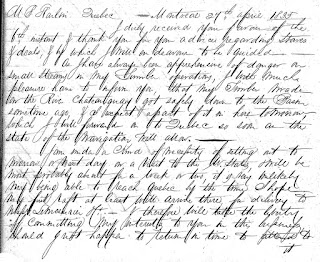 M P Railin Quebec — Montreal 27th April 1835
I duly received your favor of the
6th instant & thank you for your advice regarding Staves
& deals, & by which I will endeavor to be guided —
as I have always been apprehensive of danger on
small Streams in my Timber operations, I with much
pleasure have to inform you, that my Timber made
on the River Chateauguay got safely down to the Basin
sometime ago, & I expect a part of it in here tomorrow
which I will forward on to Quebec so soon as the
state of the Navigation will allow.
I am under a kind of necessity of setting out to
morrow or next day on a visit to the U. States, & will be
most probably absent for a week or two, it is very unlikely
my being able to reach Quebec by the time I hope
my first raft at least will arrive there for delivery to
Messrs — I therefore will take the liberty
of committing my interests to you in the business
should I not happen to return in time to attend to
it